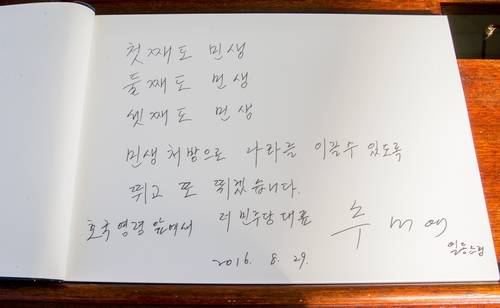 첫째도 민생
둘째도 민생
셋째도 민생
민생 처방으로 나라를 이끌수 있도록
뛰고 또 뛰겠습니다.
호국영령 앞에서 더민주당대표 추미애
2016. 8. 29.